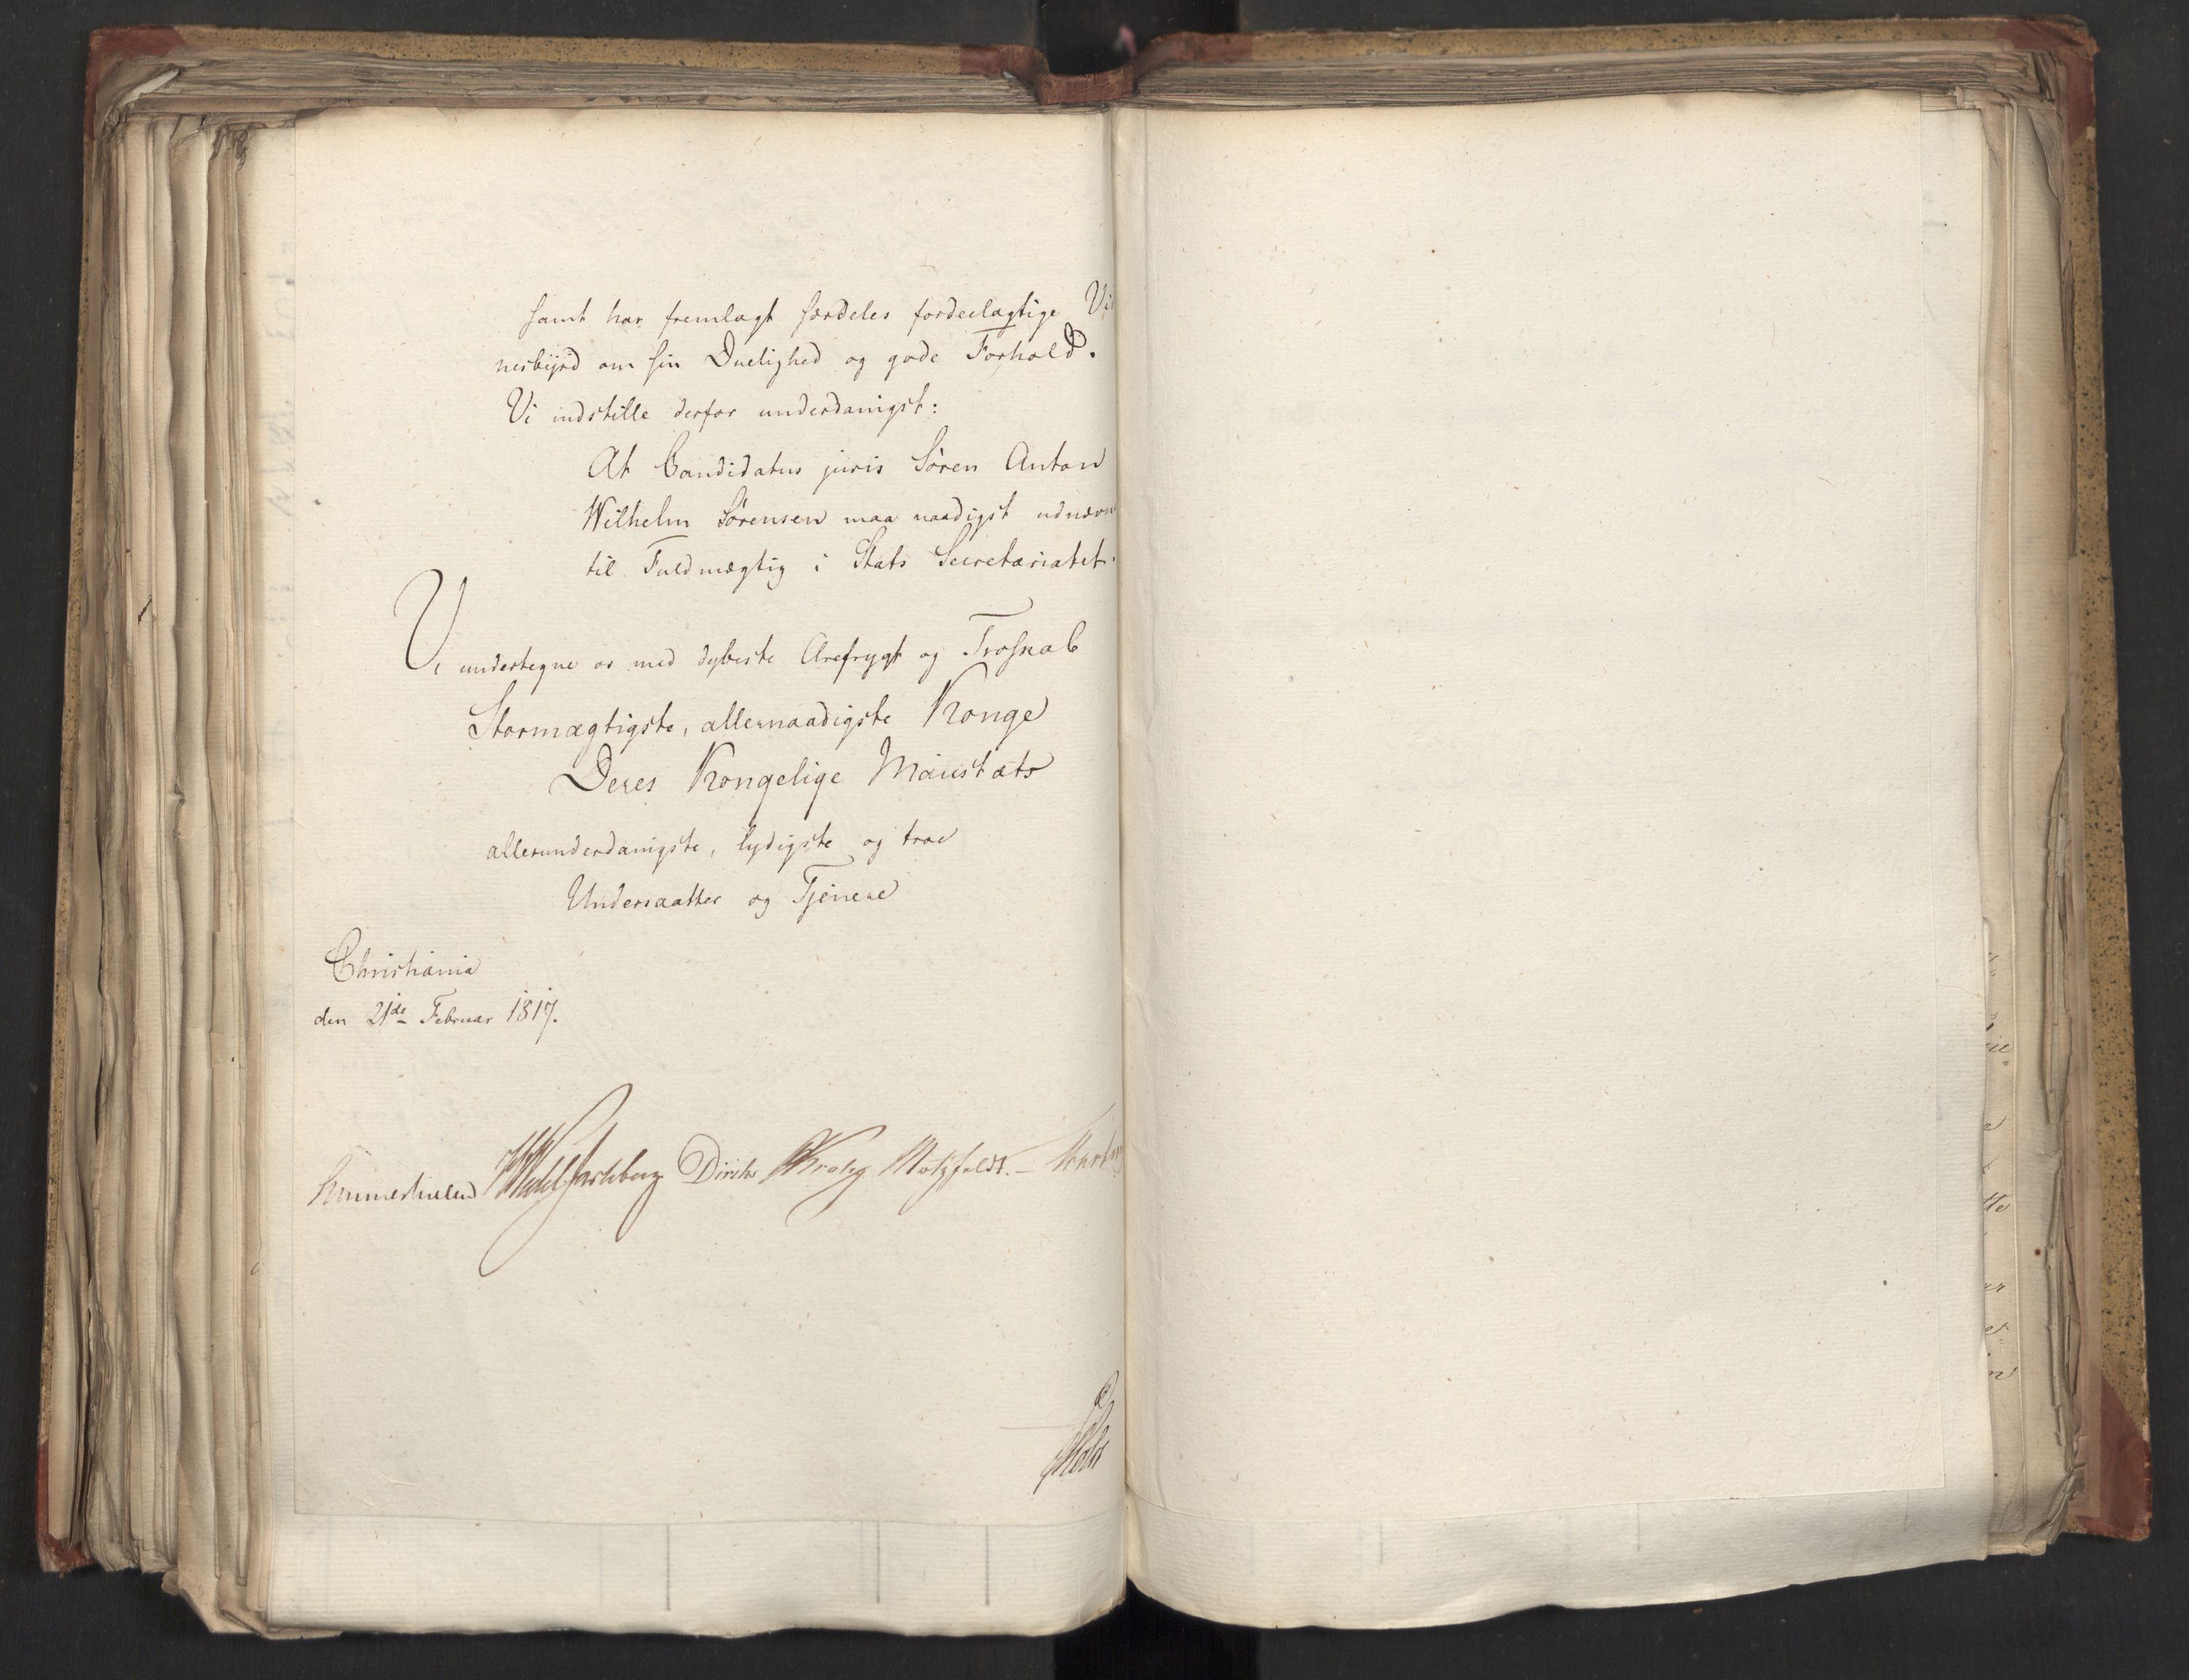 samt har fremlagt særdeles fordeelagtige Vid
nesbyrd om sin Duelighed og gode Forhold.
Vi indstille derfor underdanigst:
At Candidatus juris Sören Anton
Wilhelm Sörensen maa naadigst udnævn
til Fuldmægtig i Stats Secretariatet.
Vi undertegne os med dybeste Ærefrygt og Troskab
Stormægtigste, allernaadigste Konge
Deres Kongelige Maiestæts
allerunderdanigste, lydigste og troe
Undersaatter og Tjenere
Christiania
den 21de Februar 1817.
Sommerhielm Wedel Jarlsberg Diriks Krohg Motzfeldt.
Holst